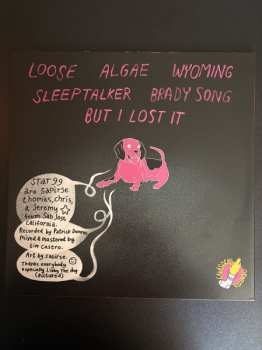 LOOSE ALGAE WYOMING
SLEEPTALKER BRADY SONG
BUT I LOST IT
Star 99
are Saoirse
thomas, chris,
& Jeremy
from San Jose
California.
Recorded by Patrick
mixed & mastered by
tim Casero.
Art by Saoirse.
Thanks everybody
especially Libby the dog
(pictured)